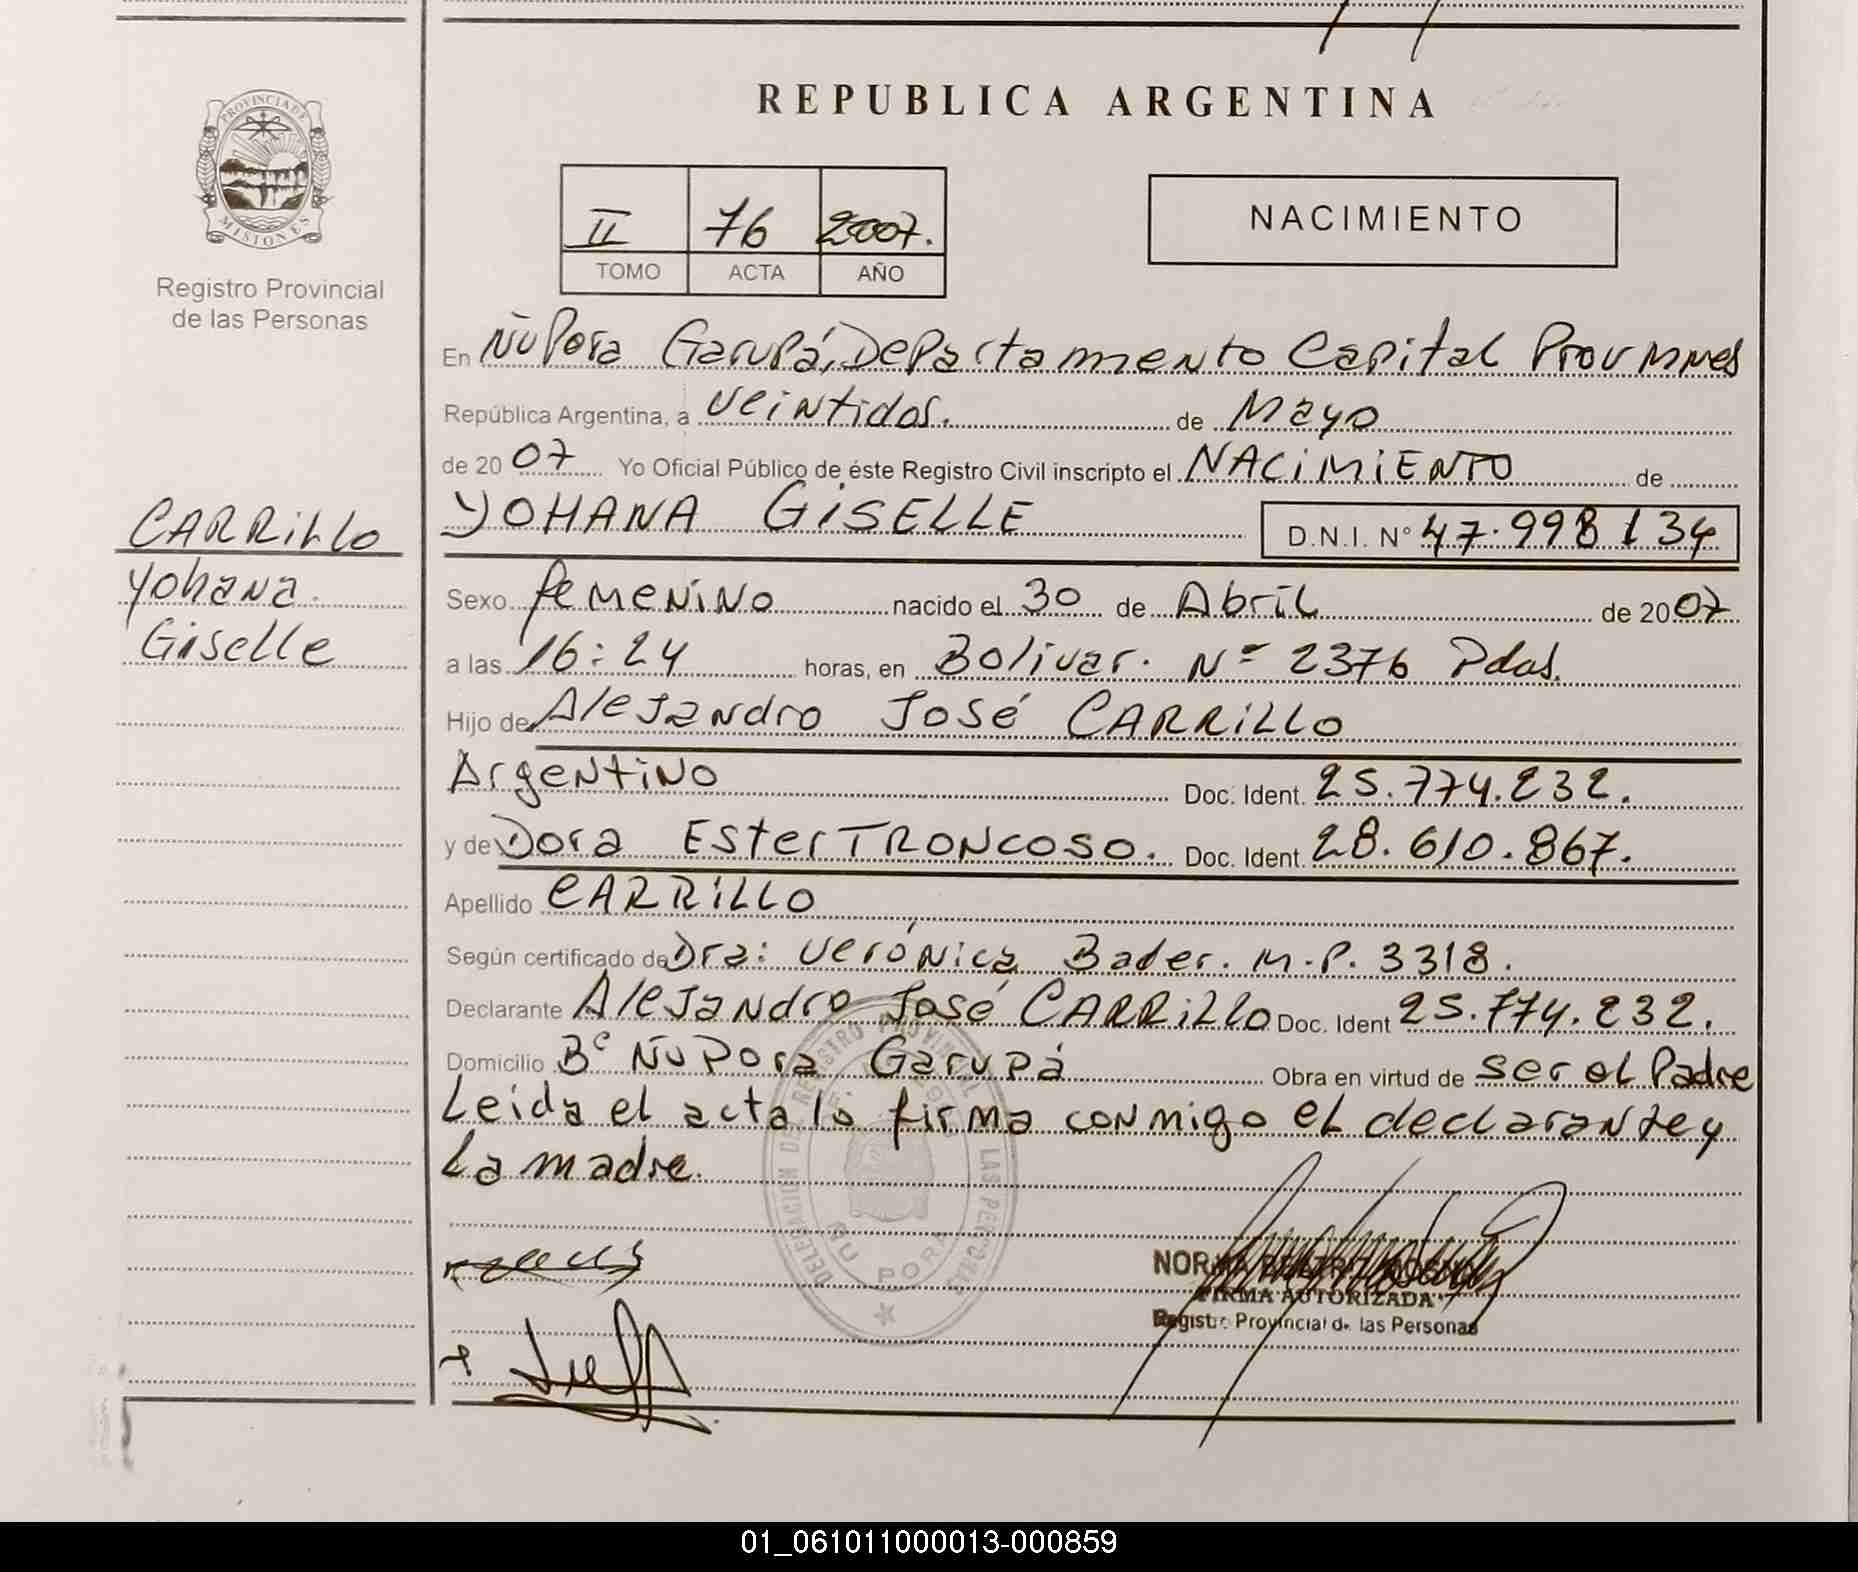 REPUBLICA ARGENTINA
PROVINCIA DE
MISIONES
Registro Provincial
de las Personas
II 76 2007.
TOMO ACTA AÑO
NACIMIENTO
En Ñu Pora Garupá, Departamento Capital Prov Mnes
República Argentina, a veintidos. de Mayo
de 20 07 Yo Oficial Público de éste Registro Civil inscripto el NACIMIENTO de
YOHANA GISELLE D.N.I. N° 47.998134
CARRILLO
Yohana
Giselle
Sexo femenino nacido el 30 de Abril de 2007
a las 16:24 horas, en Bolivar. N° 2376 Pdas.
Hijo de Alejandro José CARRILLO
Argentino Doc. Ident. 25.774.232.
y de Dora Ester TRONCOSO. Doc. Ident. 28.610.867.
Apellido CARRILLO
Según certificado de Dra: Verónica Bader. M.P. 3318.
Declarante Alejandro José CARRILLO Doc. Ident 25.774.232.
Domicilio B° Ñu Pora Garupá Obra en virtud de ser el Padre
Leida el acta la firma conmigo el declarante y
La madre.
DELEGACION DEL REGISTRO PROVINCIAL DE LAS PERSONAS
ÑU PORA
NORMA
FIRMA AUTORIZADA
Registro Provincial de las Personas
01_061011000013-000859